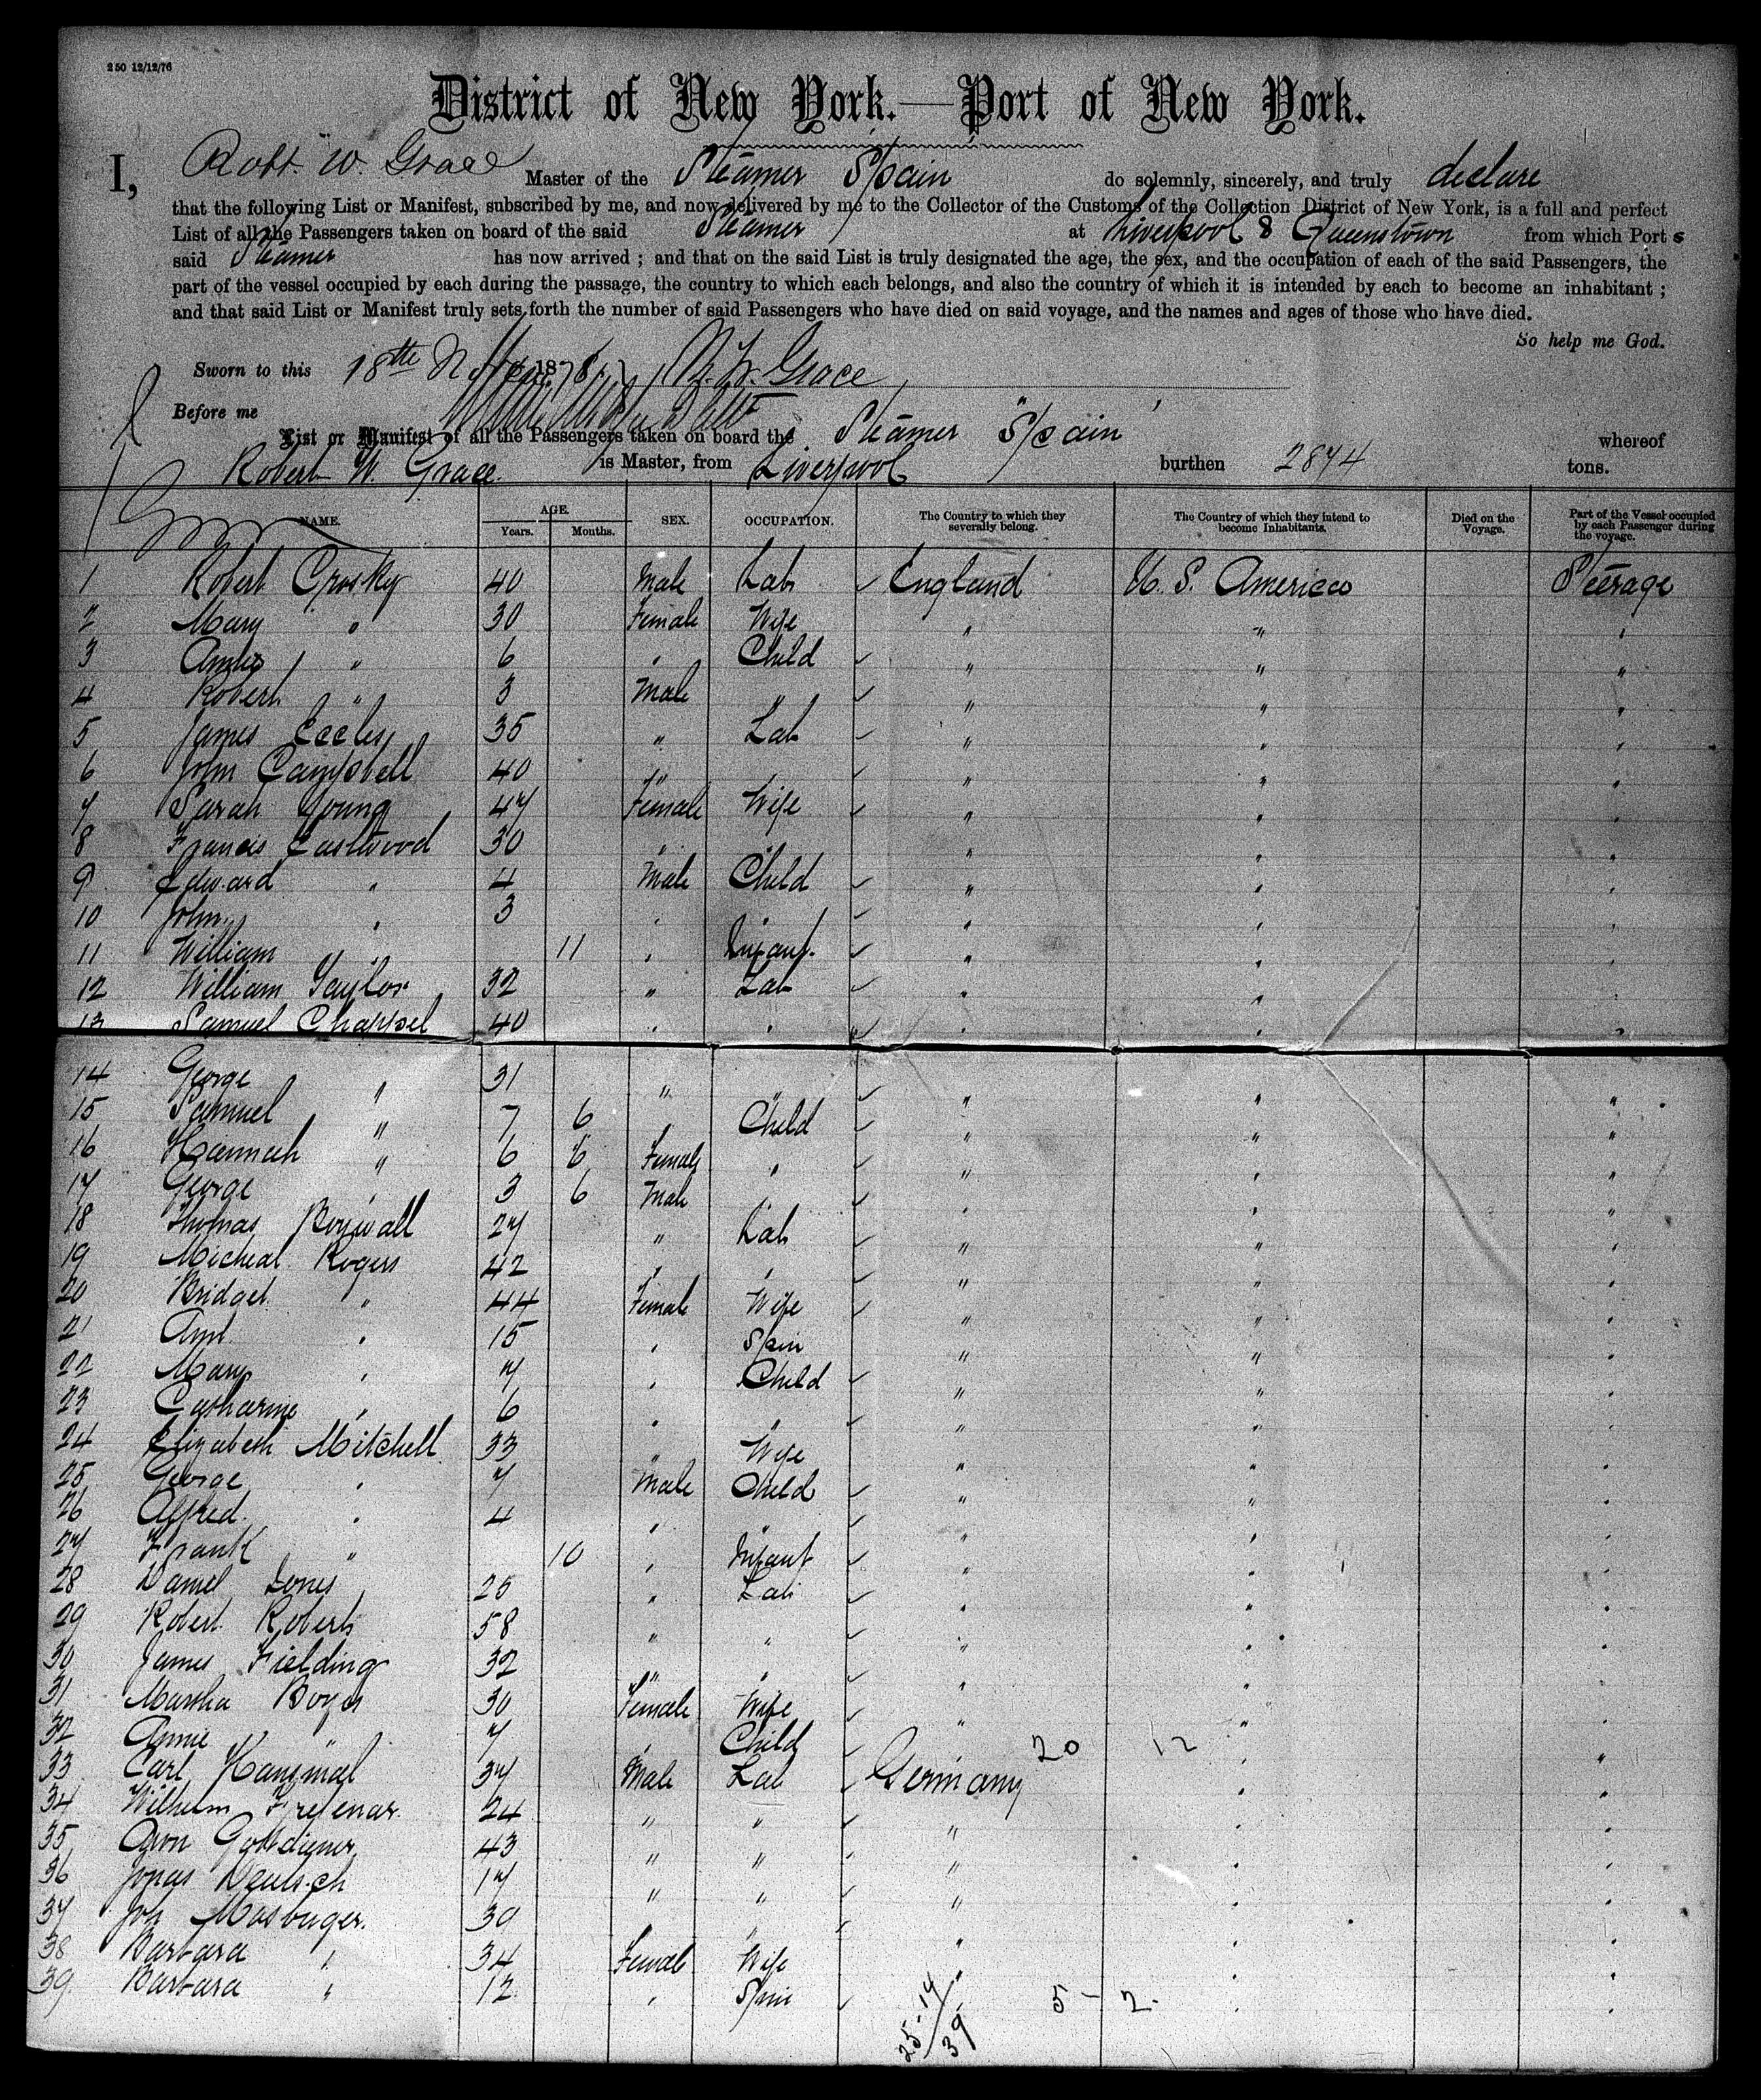 250 12/12/76
District of New York.—Port of New York.
I, Robt. W. Grace Master of the Steamer Spain do solemnly, sincerely, and truly declare
that the following List or Manifest, subscribed by me, and now delivered by me to the Collector of the Customs of the Collection District of New York, is a full and perfect
List of all the Passengers taken on board of the said Steamer at Liverpool & Queenstown from which Ports
said Steamer has now arrived ; and that on the said List is truly designated the age, the sex, and the occupation of each of the said Passengers, the
part of the vessel occupied by each during the passage, the country to which each belongs, and also the country of which it is intended by each to become an inhabitant ;
and that said List or Manifest truly sets forth the number of said Passengers who have died on said voyage, and the names and ages of those who have died.
So help me God.
Sworn to this 18th 1878 R. W. Grace
Before me
List or Manifest of all the Passengers taken on board the Steamer "Spain" whereof
Robert W. Grace is Master, from Liverpool burthen 2874 tons.
NAME. AGE. Years. Months. SEX. OCCUPATION. The Country to which they severally belong. The Country of which they intend to become Inhabitants. Died on the Voyage. Part of the Vessel occupied by each Passenger during the voyage.
1 Robert Crosky 40 Male Lab England U. S. America Steerage
2 Mary " 30 Female Wife " " "
3 " 6 " Child " " "
4 Robert " 3 Male " " " "
5 James Eccles 35 " Lab " " "
6 John Campbell 40 " " " " "
7 Sarah Young 47 Female Wife " " "
8 Francis Eastwood 30 " " " " "
9 Edward " 4 Male Child " " "
10 John " 3 " " " " "
11 William " 11 " Infant " " "
12 William Taylor 32 " Lab " " "
13 Samuel Chappel 40 " " " " "
14 George " 31 " " " " "
15 Samuel " 7 6 " Child " " "
16 Hannah " 6 6 Female " " " "
17 George " 3 6 Male " " " "
18 Thomas 27 " Lab " " "
19 Micheal Rogers 42 " " " " "
20 Bridget " 44 Female Wife " " "
21 Ann " 15 " Spin " " "
22 Mary " 7 " Child " " "
23 Catharine " 6 " " " " "
24 Elizabeth Mitchell 33 " Wife " " "
25 George " 7 Male Child " " "
26 Alfred " 4 " " " " "
27 Frank " 10 " Infant " " "
28 Daniel Jones 25 " Lab " " "
29 Robert Roberts 58 " " " " "
30 James Fielding 32 " " " " "
31 Martha Boyes 30 Female Wife " " "
32 Annie " 7 " Child 20 12 " "
33 Carl 37 Male Lab Germany " "
34 Wilhelm 24 " " " " "
35 43 " " " " "
36 Jonas Deutsch 17 " " " " "
37 Joh Mosburger 39 " " " " "
38 Barbara " 34 Female Wife " " "
39 Barbara " 12 " Spin " 5 - 2 " "
25-14/39